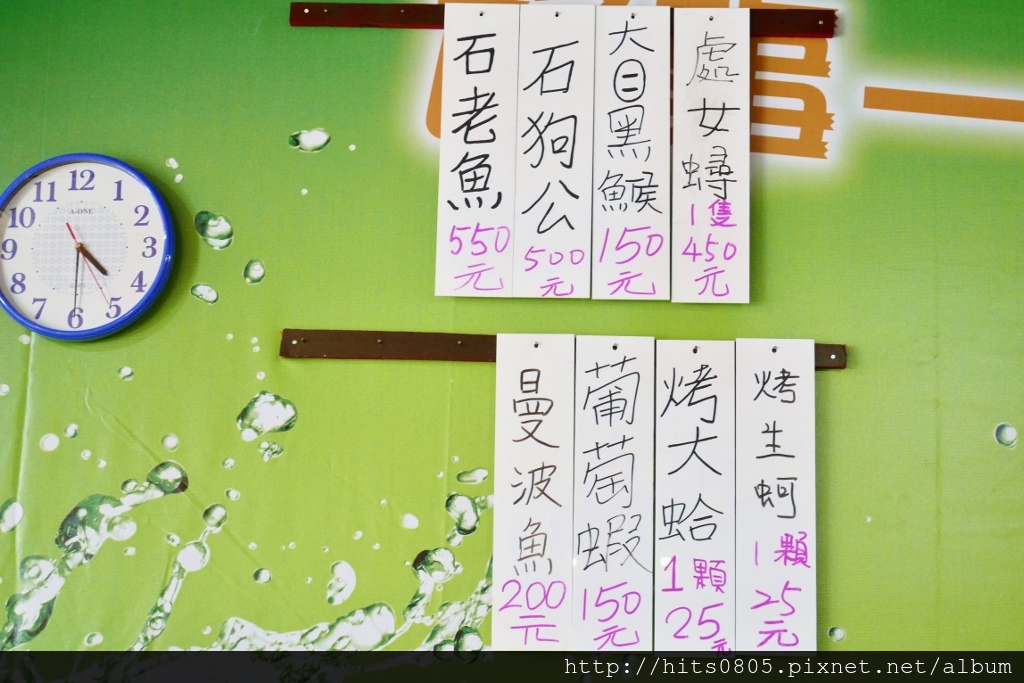 石老魚
550
元
石狗公
500
元
大目黑鯸
150
元
處女蟳
1隻
450
元
曼波魚
200
元
葡萄蝦
150
元
烤大蛤
1顆
25元
烤生蚵
1顆
25
元
12
1
2
3
4
5
6
7
8
9
10
11
A-ONE
http://hits0805.pixnet.net/album